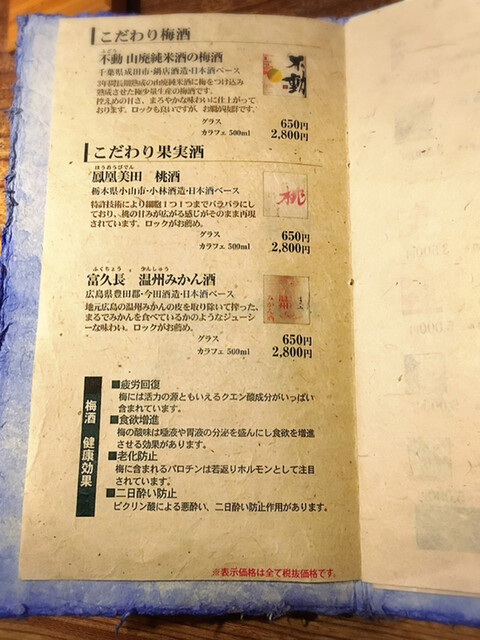 こだわり梅酒
ふどう
不動 山廃純米酒の梅酒
千葉県成田市・鍋店酒造・日本酒ベース
3年間長期熟成の山廃純米酒に梅をつけ込み
熟成させた極少量生産の梅酒です。
控えめの甘さ、まろやかな味わいに仕上がって
おります。ロックも良いですが、お燗が抜群です。
グラス 650円
カラフェ 500ml 2,800円
不動
こだわり果実酒
ほうおうびでん
鳳凰美田 桃酒
栃木県小山市・小林酒造・日本酒ベース
特許技術により細胞1つ1つまでバラバラにし
ており、桃の甘みが広がる感じがそのまま再現
されています。ロックがお薦め。
グラス 650円
カラフェ 500ml 2,800円
桃
ふくちょう うんしゅう
富久長 温州みかん酒
広島県豊田郡・今田酒造・日本酒ベース
地元広島の温州みかんの皮を取り除いて搾った、
まるでみかんを食べているかのようなジューシ
ーな味わい。ロックがお薦め。
グラス 650円
カラフェ 500ml 2,800円
梅酒 健康効果
■疲労回復
梅には活力の源ともいえるクエン酸成分がいっぱい
含まれています。
■食欲増進
梅の酸味は唾液や胃液の分泌を盛んにし食欲を増進
させる効果があります。
■老化防止
梅に含まれるパロチンは若返りホルモンとして注目
されています。
■二日酔い防止
ピクリン酸による悪酔い、二日酔い防止作用があります。
※表示価格は全て税抜価格です。